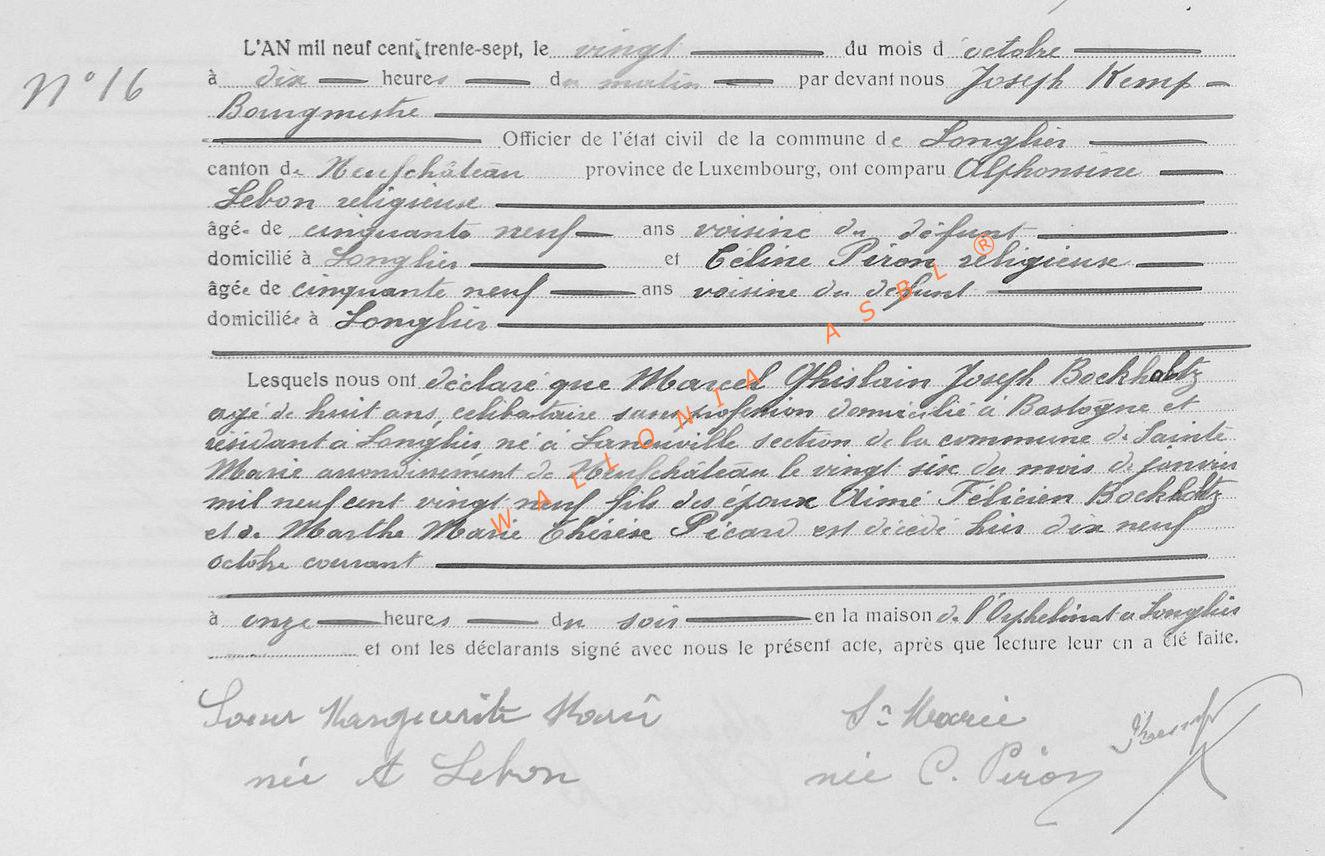 L'AN mil neuf cent trente-sept, le vingt du mois d'octobre
N° 16
à dix heures du matin par devant nous Joseph Kemp
Bourgmestre
Officier de l'état civil de la commune de Longlier
canton de Neufchâteau province de Luxembourg, ont comparu Alphonsine
Lebon religieuse
âgée de cinquante neuf ans voisine du défunt
domicilié à Longlier et Céline Piron religieuse
âgée de cinquante neuf ans voisine du défunt
domiciliée à Longlier
Lesquels nous ont déclaré que Marcel Ghislain Joseph Bockholtz
agé de huit ans, célibataire sans profession domicilié à Bastogne et
résidant à Longlier, né à Laneuville section de la commune de Sainte
Marie arrondissement de Neufchâteau le vingt six du mois de janvier
mil neuf cent vingt neuf fils des époux Aimé Félicien Bockholtz
et de Marthe Marie Thérèse Picard est décédé hier dix neuf
octobre courant
à onze heures du soir en la maison de l'Orphelinat à Longlier
et ont les déclarants signé avec nous le présent acte, après que lecture leur en a été faite.
Soeur Marguerite Marie Sr Marie
née A Lebon née C. Piron
WALLONIA ASBL ®